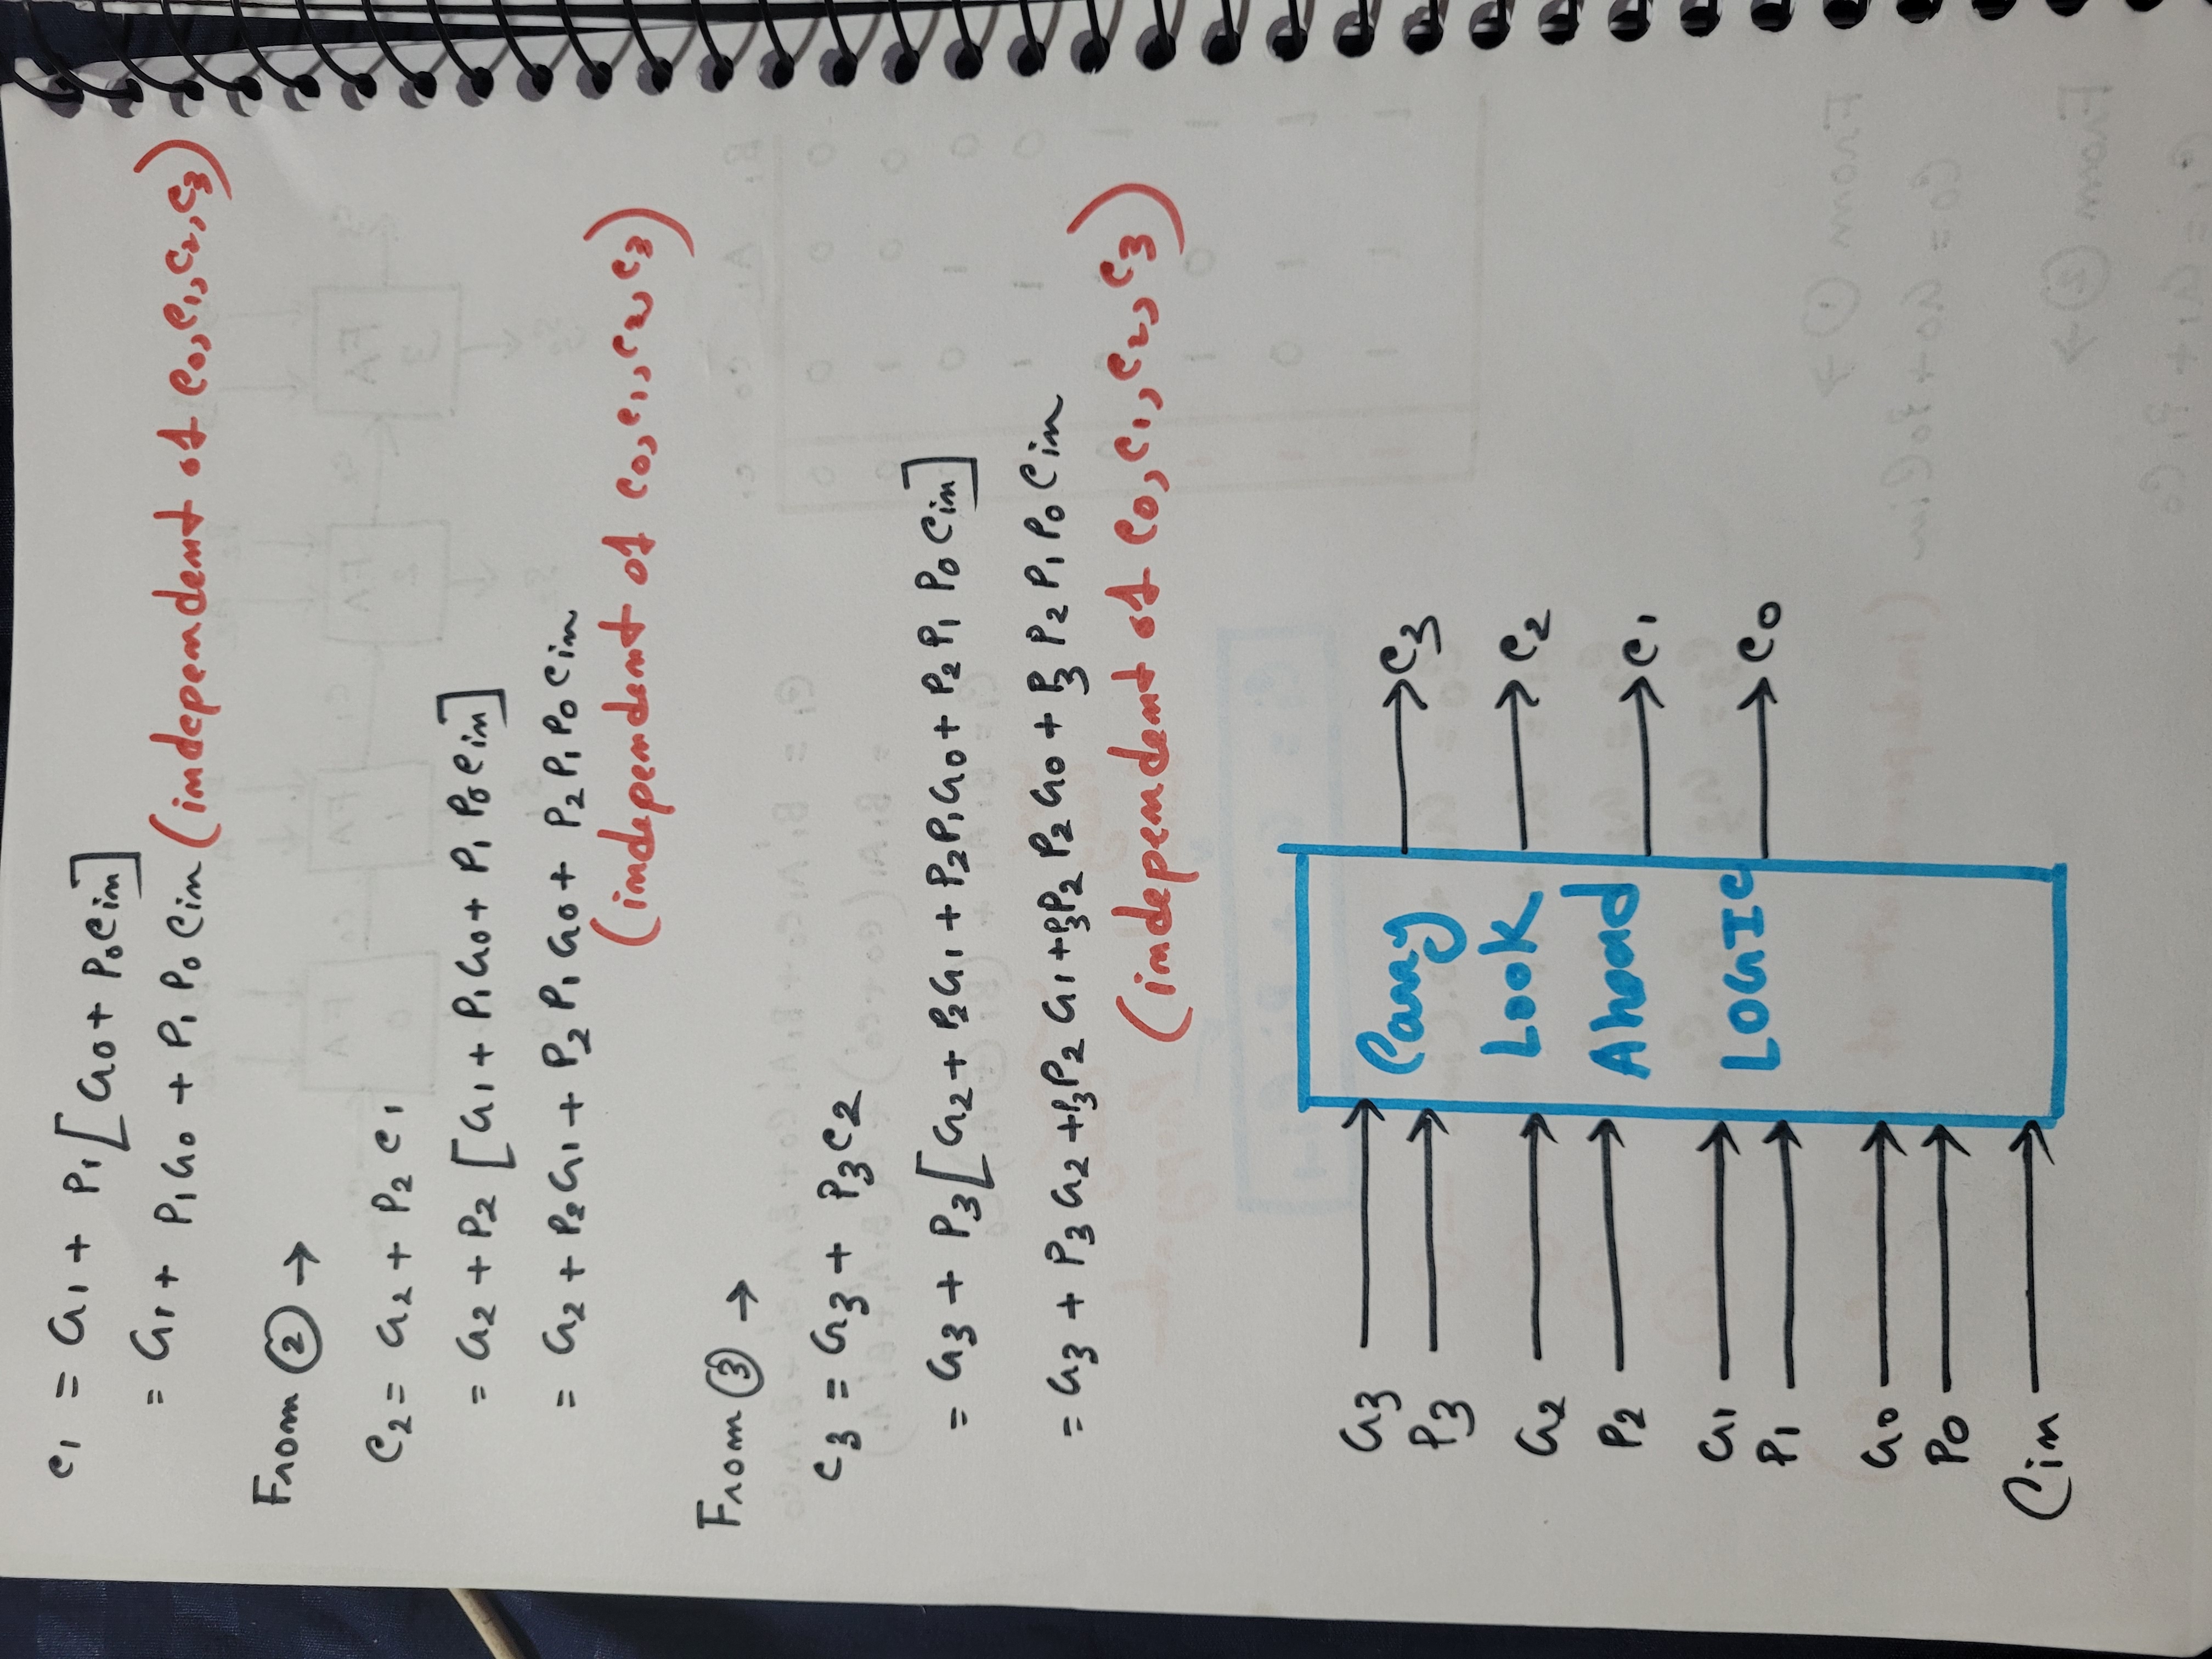 C1 = G1 + P1[G0 + P0Cin]
= G1 + P1G0 + P1 P0 Cin (independent of C0, C1, C2, C3)
From ② →
C2 = G2 + P2 C1
= G2 + P2 [G1 + P1G0 + P1 P0 Cin]
= G2 + P2G1 + P2 P1 G0 + P2 P1 P0 Cin
(independent of C0, C1, C2, C3)
From ③ →
C3 = G3 + P3C2
= G3 + P3[G2 + P2G1 + P2P1G0 + P2 P1 P0 Cin]
= G3 + P3 G2 + P3P2 G1 + P3P2 P2 G0 + P3 P2 P1 P0 Cin
(independent of C0, C1, C2, C3)
G3
P3
G2
P2
G1
P1
G0
P0
Cin
Carry
Look
Ahead
LOGIC
C3
C2
C1
C0